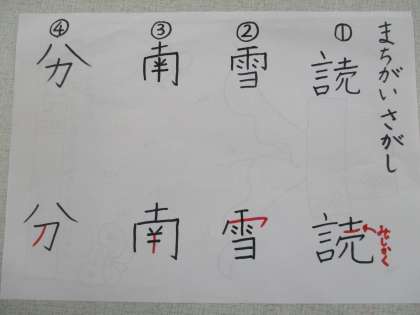 まちがいさがし
①
読
読
みじかく
②
雪
雪
③
南
南
④
分
分